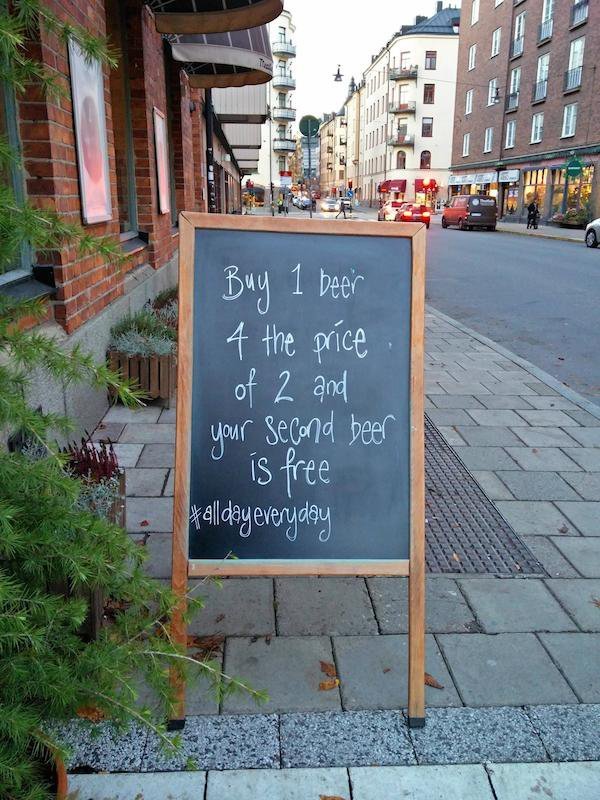 Buy 1 beer
4 the price
of 2 and
your second beer
is free
#alldayeveryday